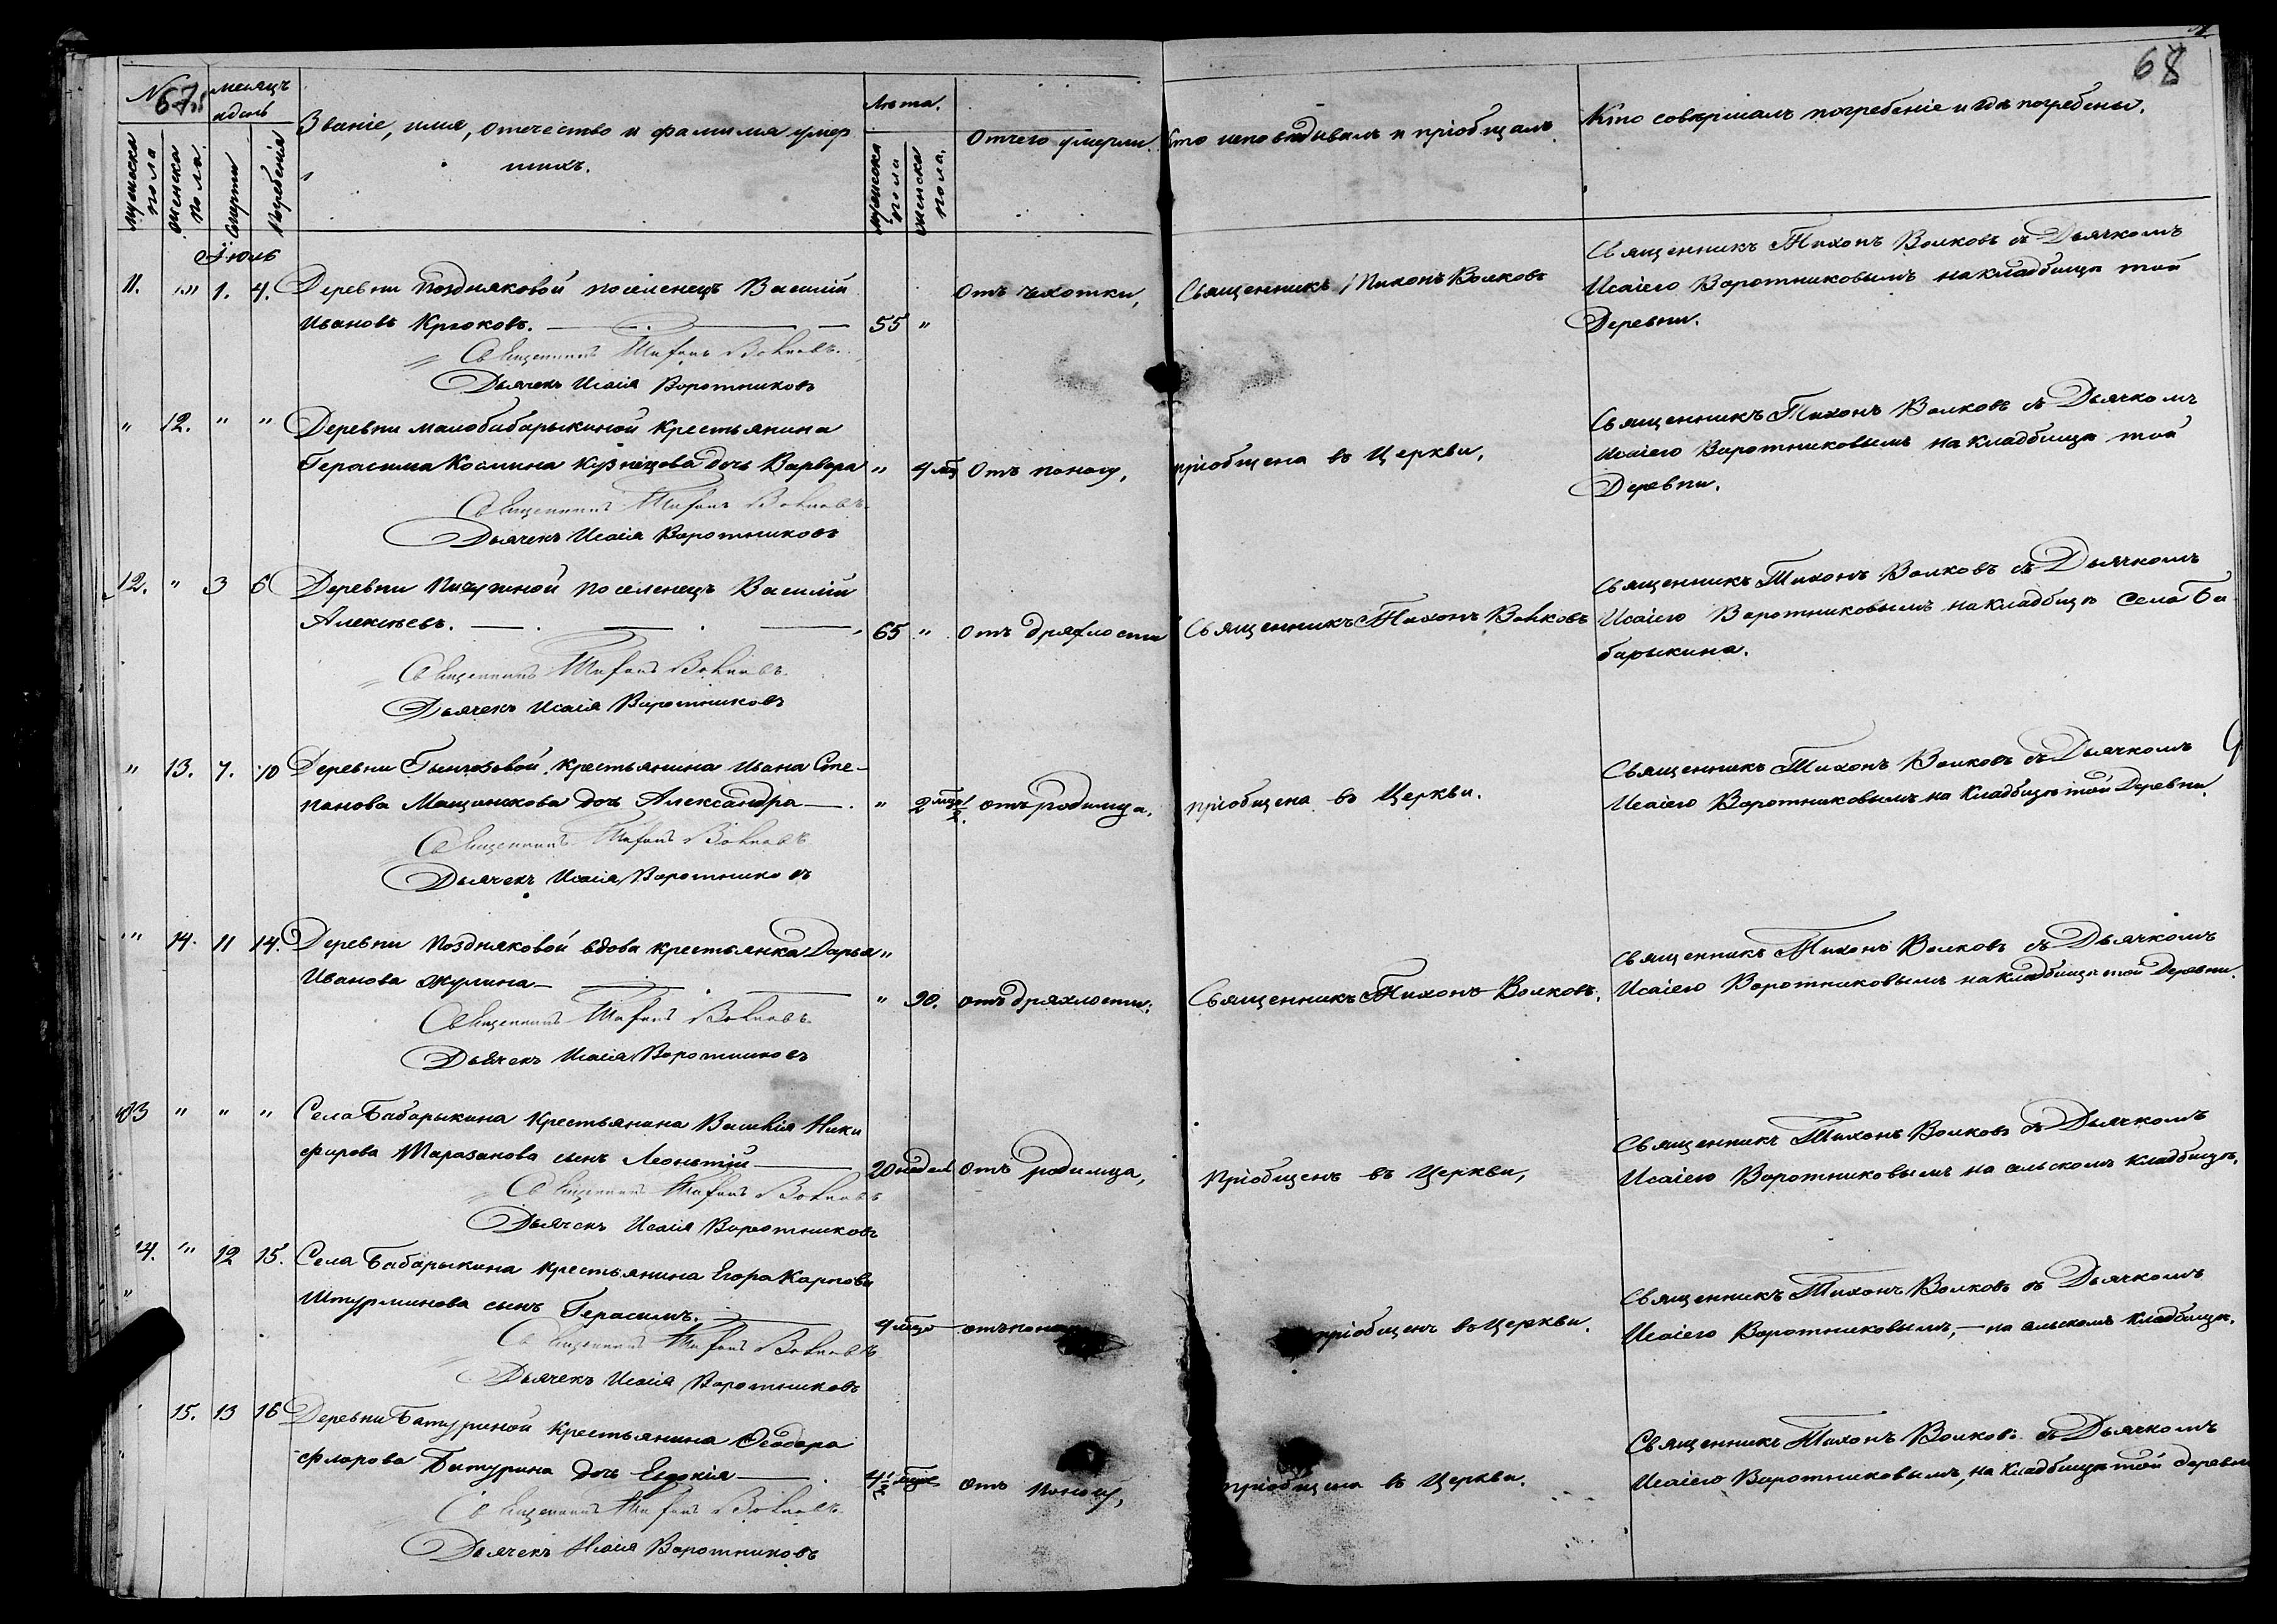 67
68
Мѣсяцъ
и день
Званіе, имя, отечество и фамилія умер
шихъ.
Лѣта.
Отчего умерли.
Кто исповѣдывалъ и пріобщалъ.
Кто совершалъ погребеніе и гдѣ погребены.
мужеска пола
женска пола
Смерти
Погребенія
мужеска пола
женска пола.
Іюль
11. " 1. 4. Деревни Поздняковой поселенецъ Василій
Ивановъ Крюковъ. 55 "
Отъ чахотки,
Священникъ Тихонъ Волковъ
Священникъ Тихонъ Волковъ съ Дьячкомъ
Исаіею Воротниковымъ на кладбищѣ той
Деревни.
Священникъ Тихонъ Волковъ.
Дьячекъ Исаія Воротниковъ
" 12. " " Деревни малобабарыкиной крестьянина
Герасима Космина Кузнецова дочь Варвара " 4 мц
Отъ поносу,
пріобщена въ Церкви,
Священникъ Тихонъ Волковъ съ Дьячкомъ
Исаіею Воротниковымъ на кладбищѣ той
Деревни.
Священникъ Тихонъ Волковъ.
Дьячекъ Исаія Воротниковъ
12. " 3 6 Деревни Пичужной поселенецъ Василій
Алексѣевъ. 65 "
Отъ дряхлости
Священникъ Тихонъ Волковъ
Священникъ Тихонъ Волковъ съ Дьячкомъ
Исаіею Воротниковымъ на кладбищѣ Села Ба
барыкина.
Священникъ Тихонъ Волковъ.
Дьячекъ Исаія Воротниковъ
" 13. 7. 10 Деревни крестьянина Ивана Сте-
панова дочь Александра " 2 ½
отъ родимца.
пріобщена въ Церкви.
Священникъ Тихонъ Волковъ съ Дьячкомъ
Исаіею Воротниковымъ на Кладбищѣ той Деревни.
Священникъ Тихонъ Волковъ
Дьячекъ Исаія Воротниковъ
" 14. 11 14. Деревни Поздняковой вдова крестьянка Дарья "
Иванова Жулина " 90.
отъ дряхлости.
Священникъ Тихонъ Волковъ.
Священникъ Тихонъ Волковъ съ Дьячкомъ
Исаіею Воротниковымъ на кладбищѣ той Деревни.
Священникъ Тихонъ Волковъ.
Дьячекъ Исаія Воротниковъ
13 " " " Села Бабарыкина крестьянина Василія Ники
фирова Таразанова сынъ Леонтій 20 недѣль
Отъ родимца,
Пріобщенъ въ Церкви,
Священникъ Тихонъ Волковъ съ Дьячкомъ
Исаіею Воротниковымъ на сельскомъ кладбищѣ.
Священникъ Тихонъ Волковъ
Дьячекъ Исаія Воротниковъ
14. " 12 15. Села Бабарыкина крестьянина Егора Карпова
Штурминова сынъ Герасимъ. 4
отъ
пріобщенъ въ Церкви.
Священникъ Тихонъ Волковъ съ Дьячкомъ
Исаіею Воротниковымъ, — на сельскомъ кладбищѣ.
Священникъ Тихонъ Волковъ
Дьячекъ Исаія Воротниковъ
15. 13 16 Деревни Батуриной крестьянина Ѳеодора
Флорова Батурина дочь Евдокія 4½
Отъ поносу,
пріобщена въ Церкви.
Священникъ Тихонъ Волковъ съ Дьячкомъ
Исаіею Воротниковымъ, на Кладбищѣ той деревни
Священникъ Тихонъ Волковъ.
Дьячекъ Исаія Воротниковъ